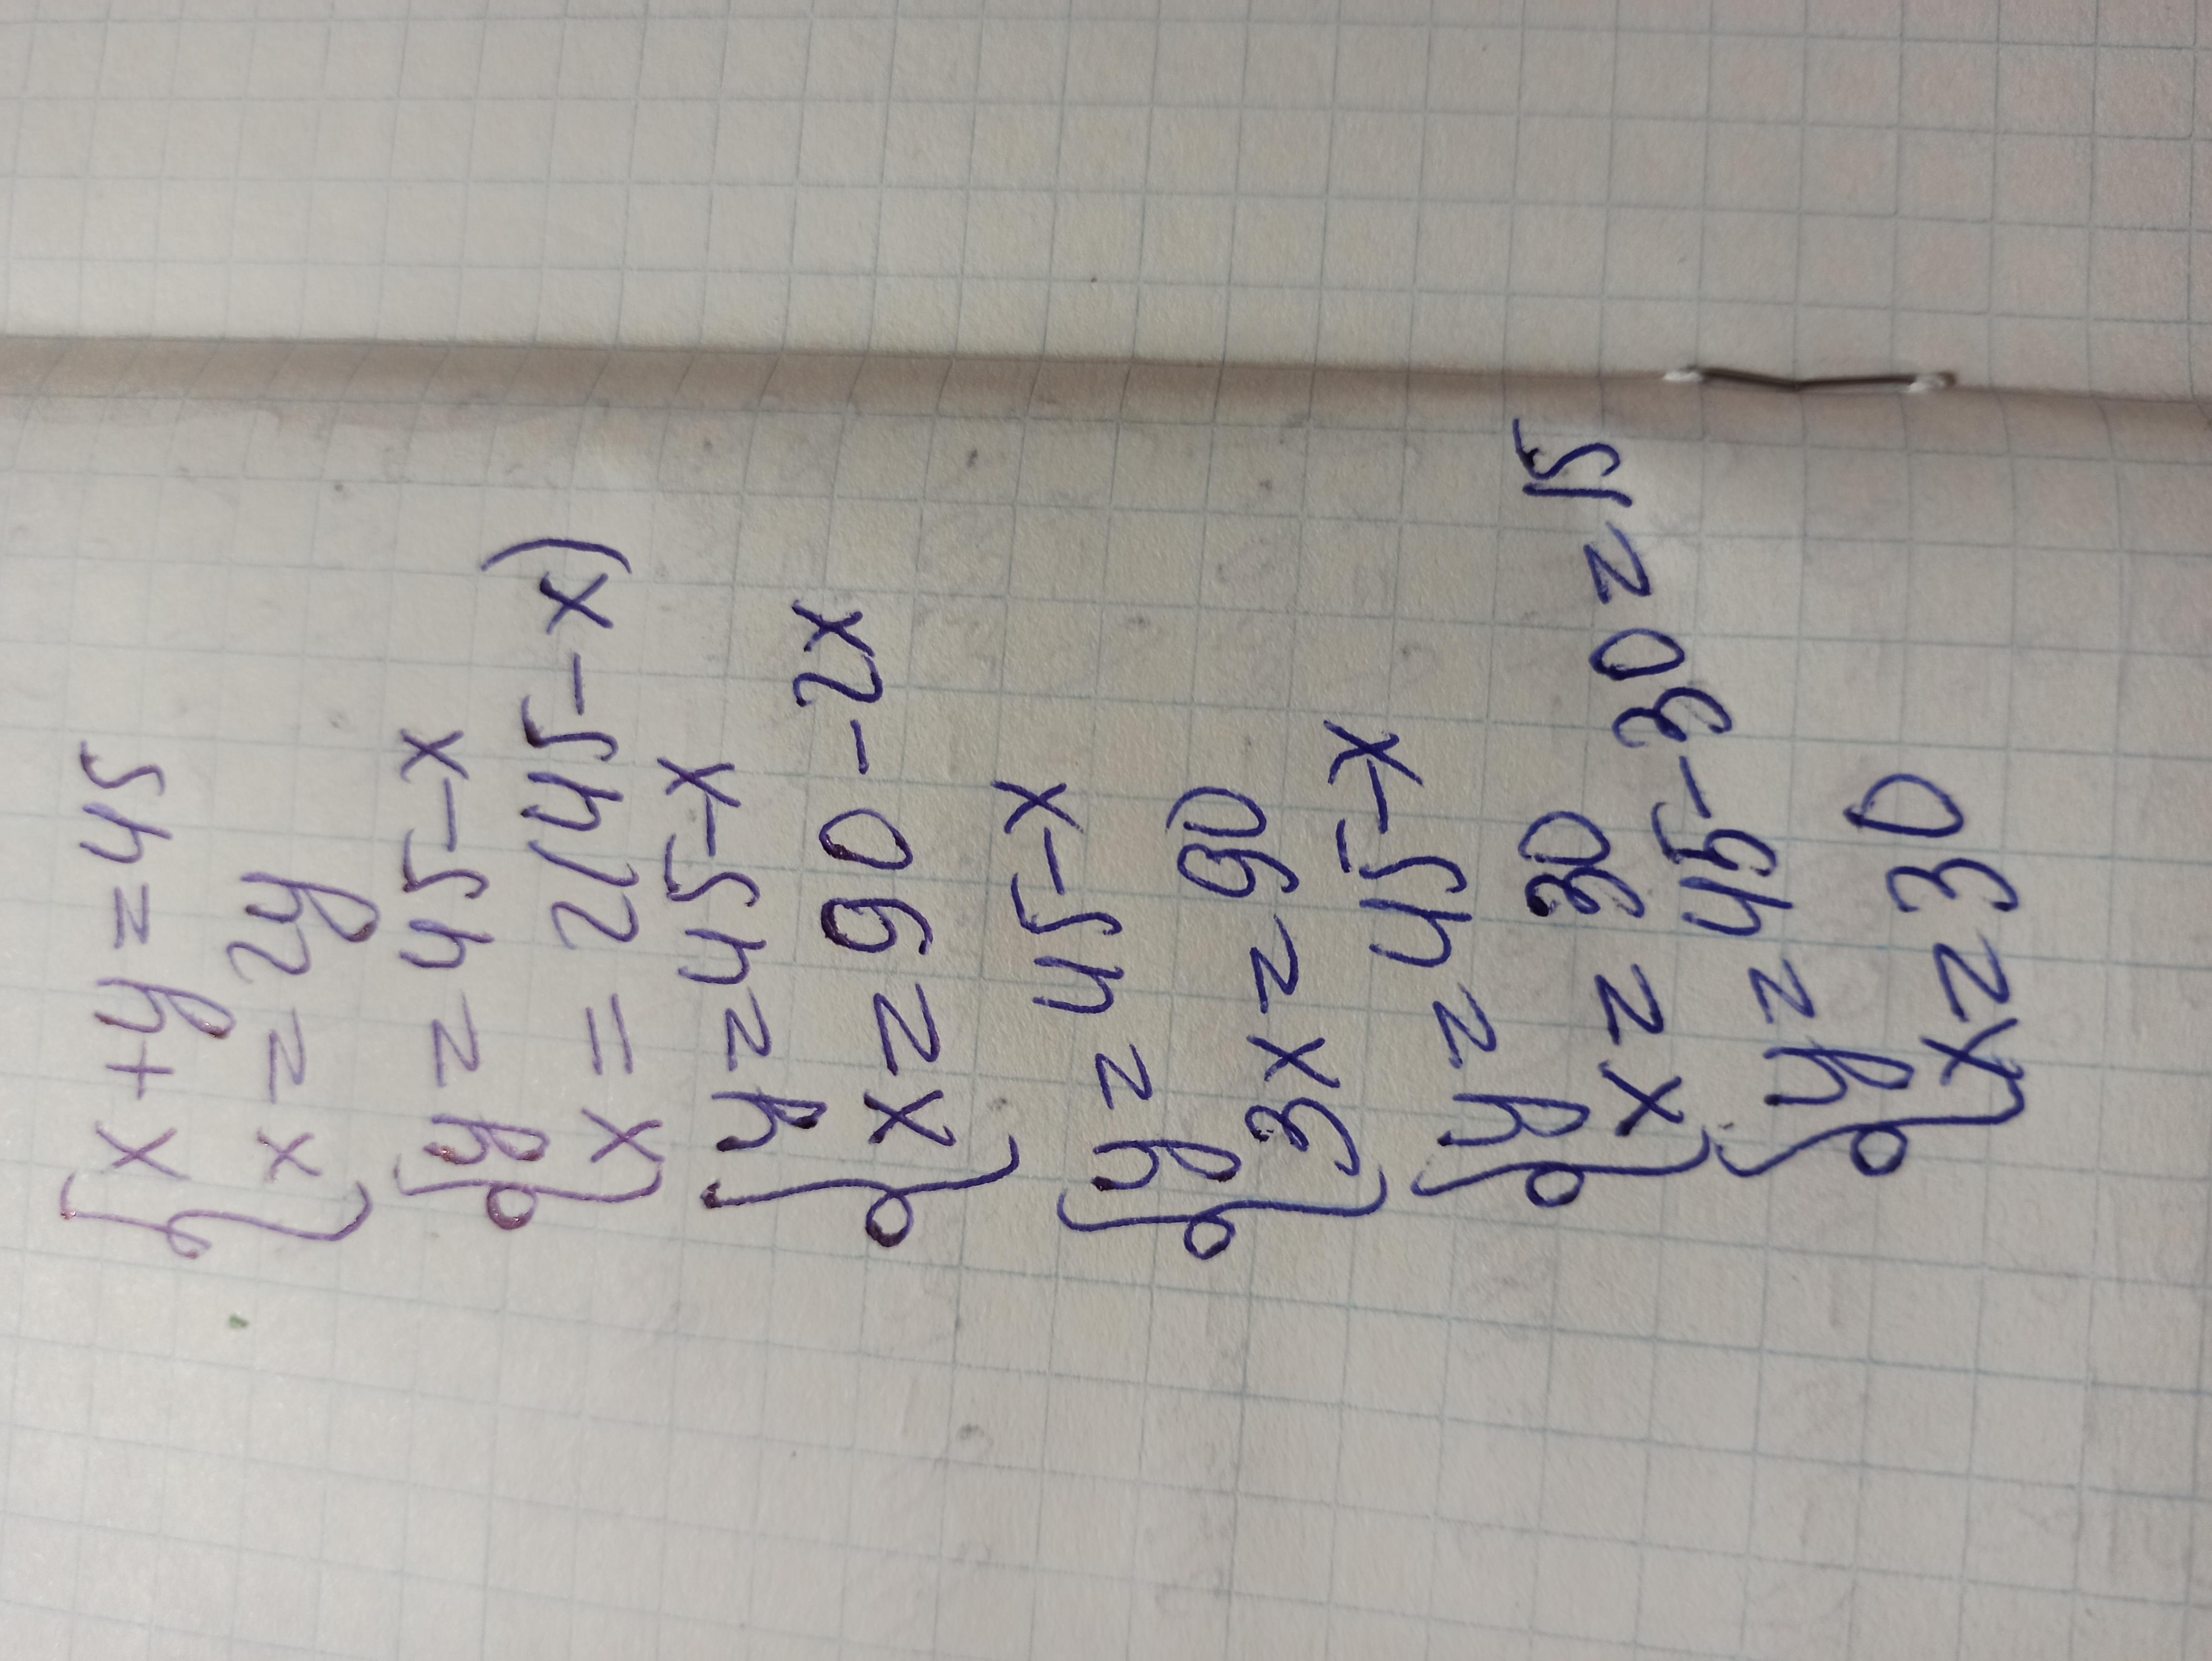 x+y=45
x=2y
y=45-x
x=2(45-x)
y=45-x
x=90-2x
y=45-x
3x=90
y=45-x
x=30
y=45-30=15
x=30